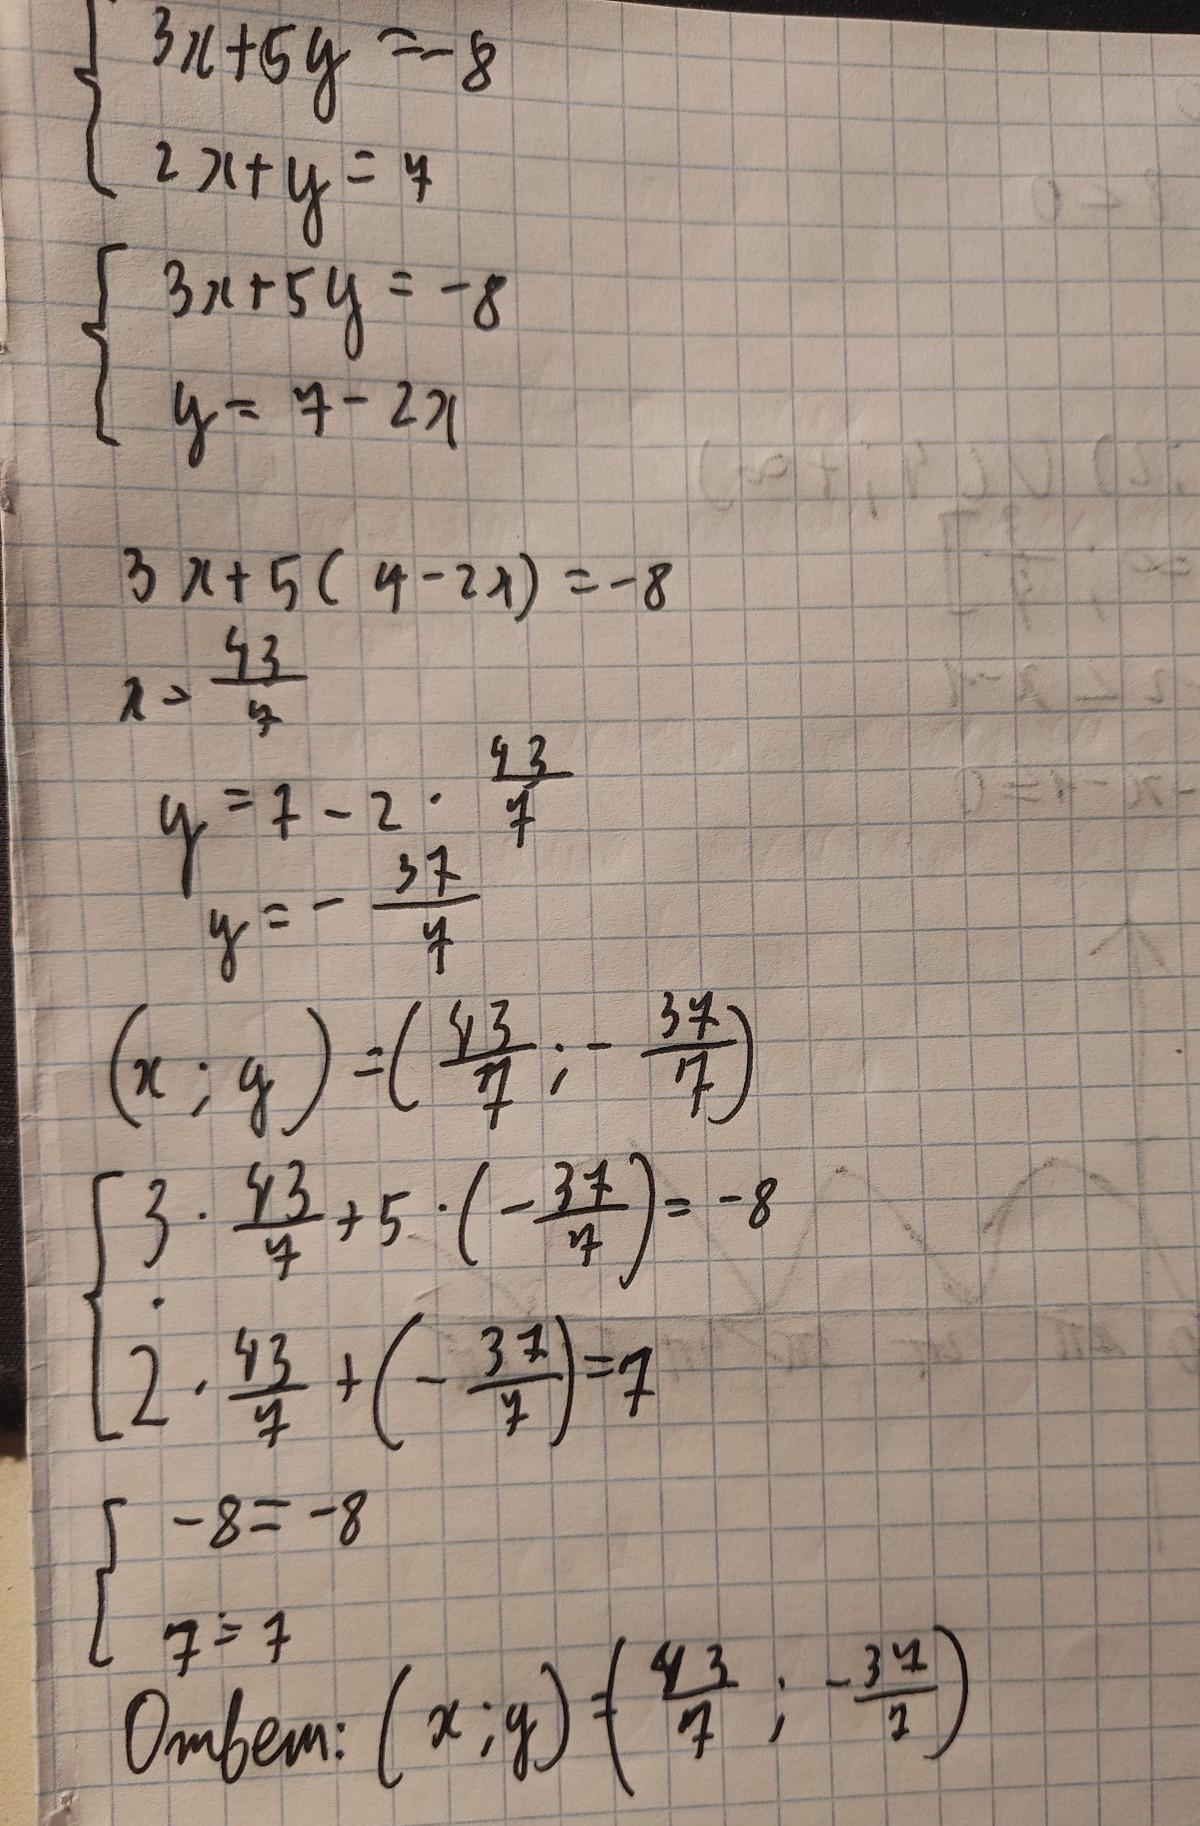 3x+5y=-8
2x+y=7
3x+5y=-8
y=7-2x
3x+5(7-2x)=-8
x=43/7
y=7-2·43/7
y=-37/7
(x;y)=(43/7;-37/7)
3·43/7+5·(-37/7)=-8
2·43/7+(-37/7)=7
-8=-8
7=7
Ответ: (x;y)=(43/7;-37/7)